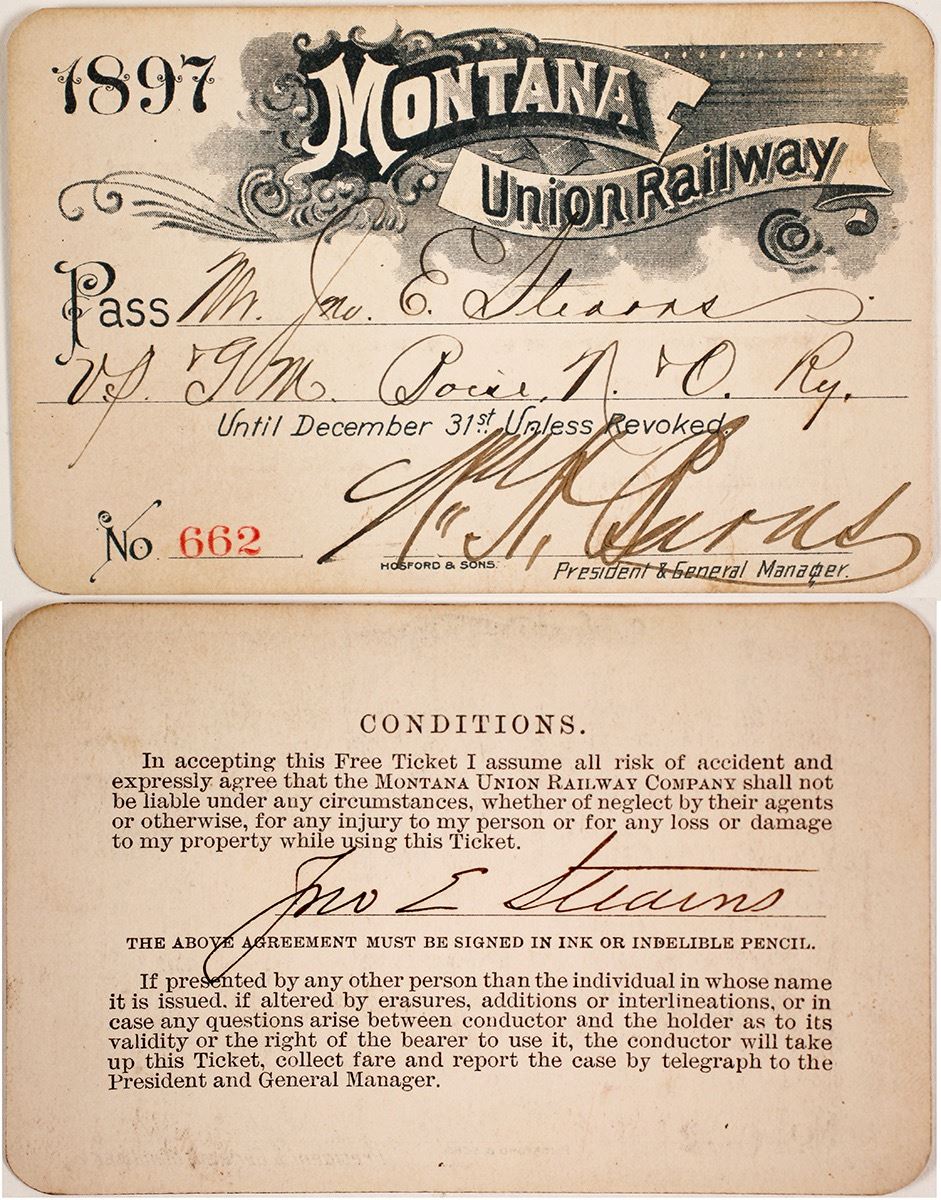 1897
MONTANA
Union Railway
Pass Mr. Jno. E. Stearns
V.P. & G.M. Boise, N. & O. Ry.
Until December 31st Unless Revoked.
No 662
HOSFORD & SONS.
President & General Manager.
CONDITIONS.
In accepting this Free Ticket I assume all risk of accident and
expressly agree that the MONTANA UNION RAILWAY COMPANY shall not
be liable under any circumstances, whether of neglect by their agents
or otherwise, for any injury to my person or for any loss or damage
to my property while using this Ticket.
Jno E Stearns
THE ABOVE AGREEMENT MUST BE SIGNED IN INK OR INDELIBLE PENCIL.
If presented by any other person than the individual in whose name
it is issued, if altered by erasures, additions or interlineations, or in
case any questions arise between conductor and the holder as to its
validity or the right of the bearer to use it, the conductor will take
up this Ticket, collect fare and report the case by telegraph to the
President and General Manager.